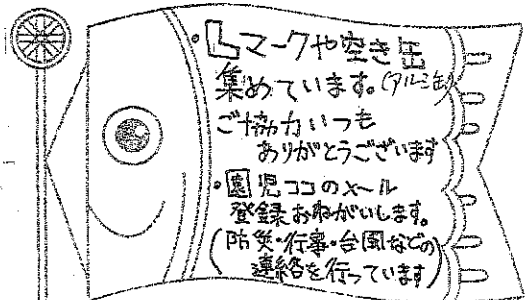 ・Lマークや空き缶
集めています。(アルミ缶)
ご協力いつも
ありがとうございます
・園児ココのメール
登録おねがいします。
(防災・行事・台風などの
連絡を行っています)